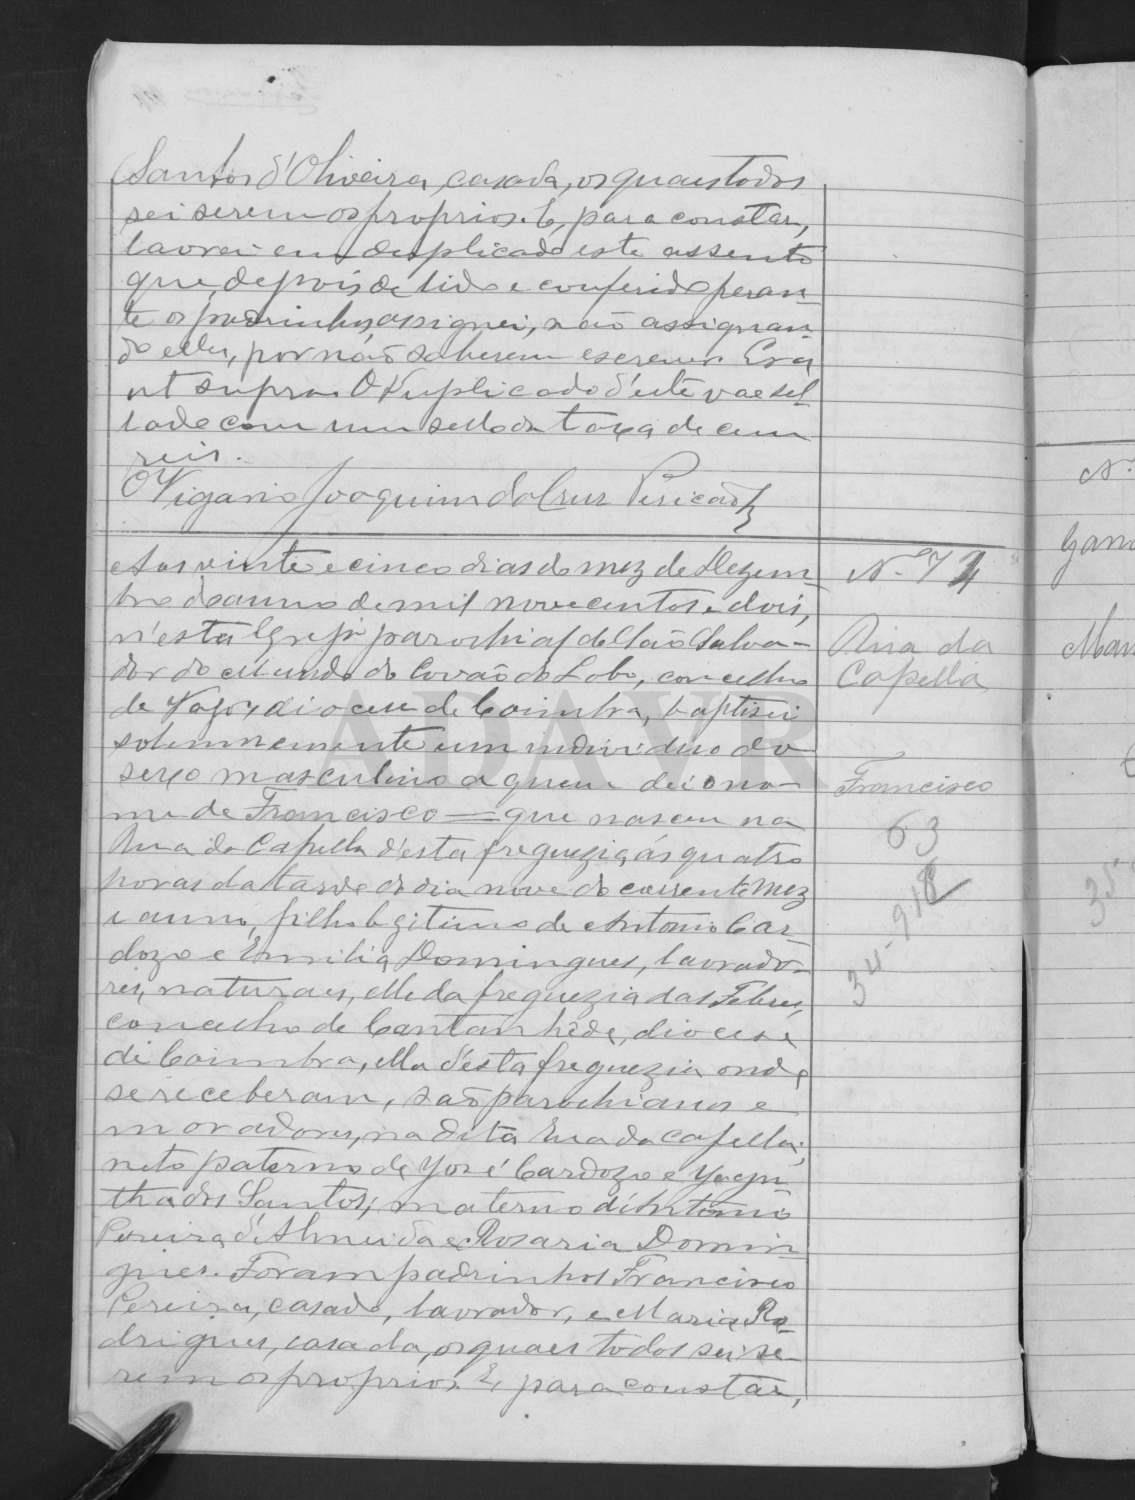 Santos d'Oliveira, casada, os quaes todos
sei serem os proprios. E, para constar,
lavrei em duplicado este assento
que, depois de lido e conferido peran-
te os padrinhos, assignei, não assignan-
do elles, por não saberem escrever. Era
ut supra. O duplicado d'este vae sel-
lado com um sello da taxa de cem
reis.
O Vigario Joaquim da Cruz Pericão
Aos vinte e cinco dias do mez de Dezem-
bro do anno de mil novecentos e dois,
n'esta Egreja parochial de São Salva-
dor do Mundo do Covão do Lobo, concelho
de Vagos, diocese de Coimbra, baptisei
solemnemente um individuo do
sexo masculino a quem dei o no-
me de Francisco = que nasceu na
Rua da Capella d'esta freguezia, ás quatro
horas da tarde do dia nove do corrente mez
e anno, filho legitimo de Antonio Car-
dozo e Emilia Domingues, lavrado-
res, naturaes, elle da freguezia das Febres,
concelho de Cantanhede, diocese
de Coimbra, ella d'esta freguezia onde
se receberam, são parochianos e
moradores, na dita Rua da Capella;
neto paterno de José Cardozo e Jacyn-
tha dos Santos; materno d'Antonio
Pereira d'Almeida e Rosaria Domin-
gues. Foram padrinhos Francisco
Pereira, casado, lavrador, e Maria Ro-
drigues, casada, os quaes todos sei se-
rem os proprios. E, para constar,
N.º 74
Rua da
Capella
Francisco
63
34-918
N.º
Mar
35
ADAVR